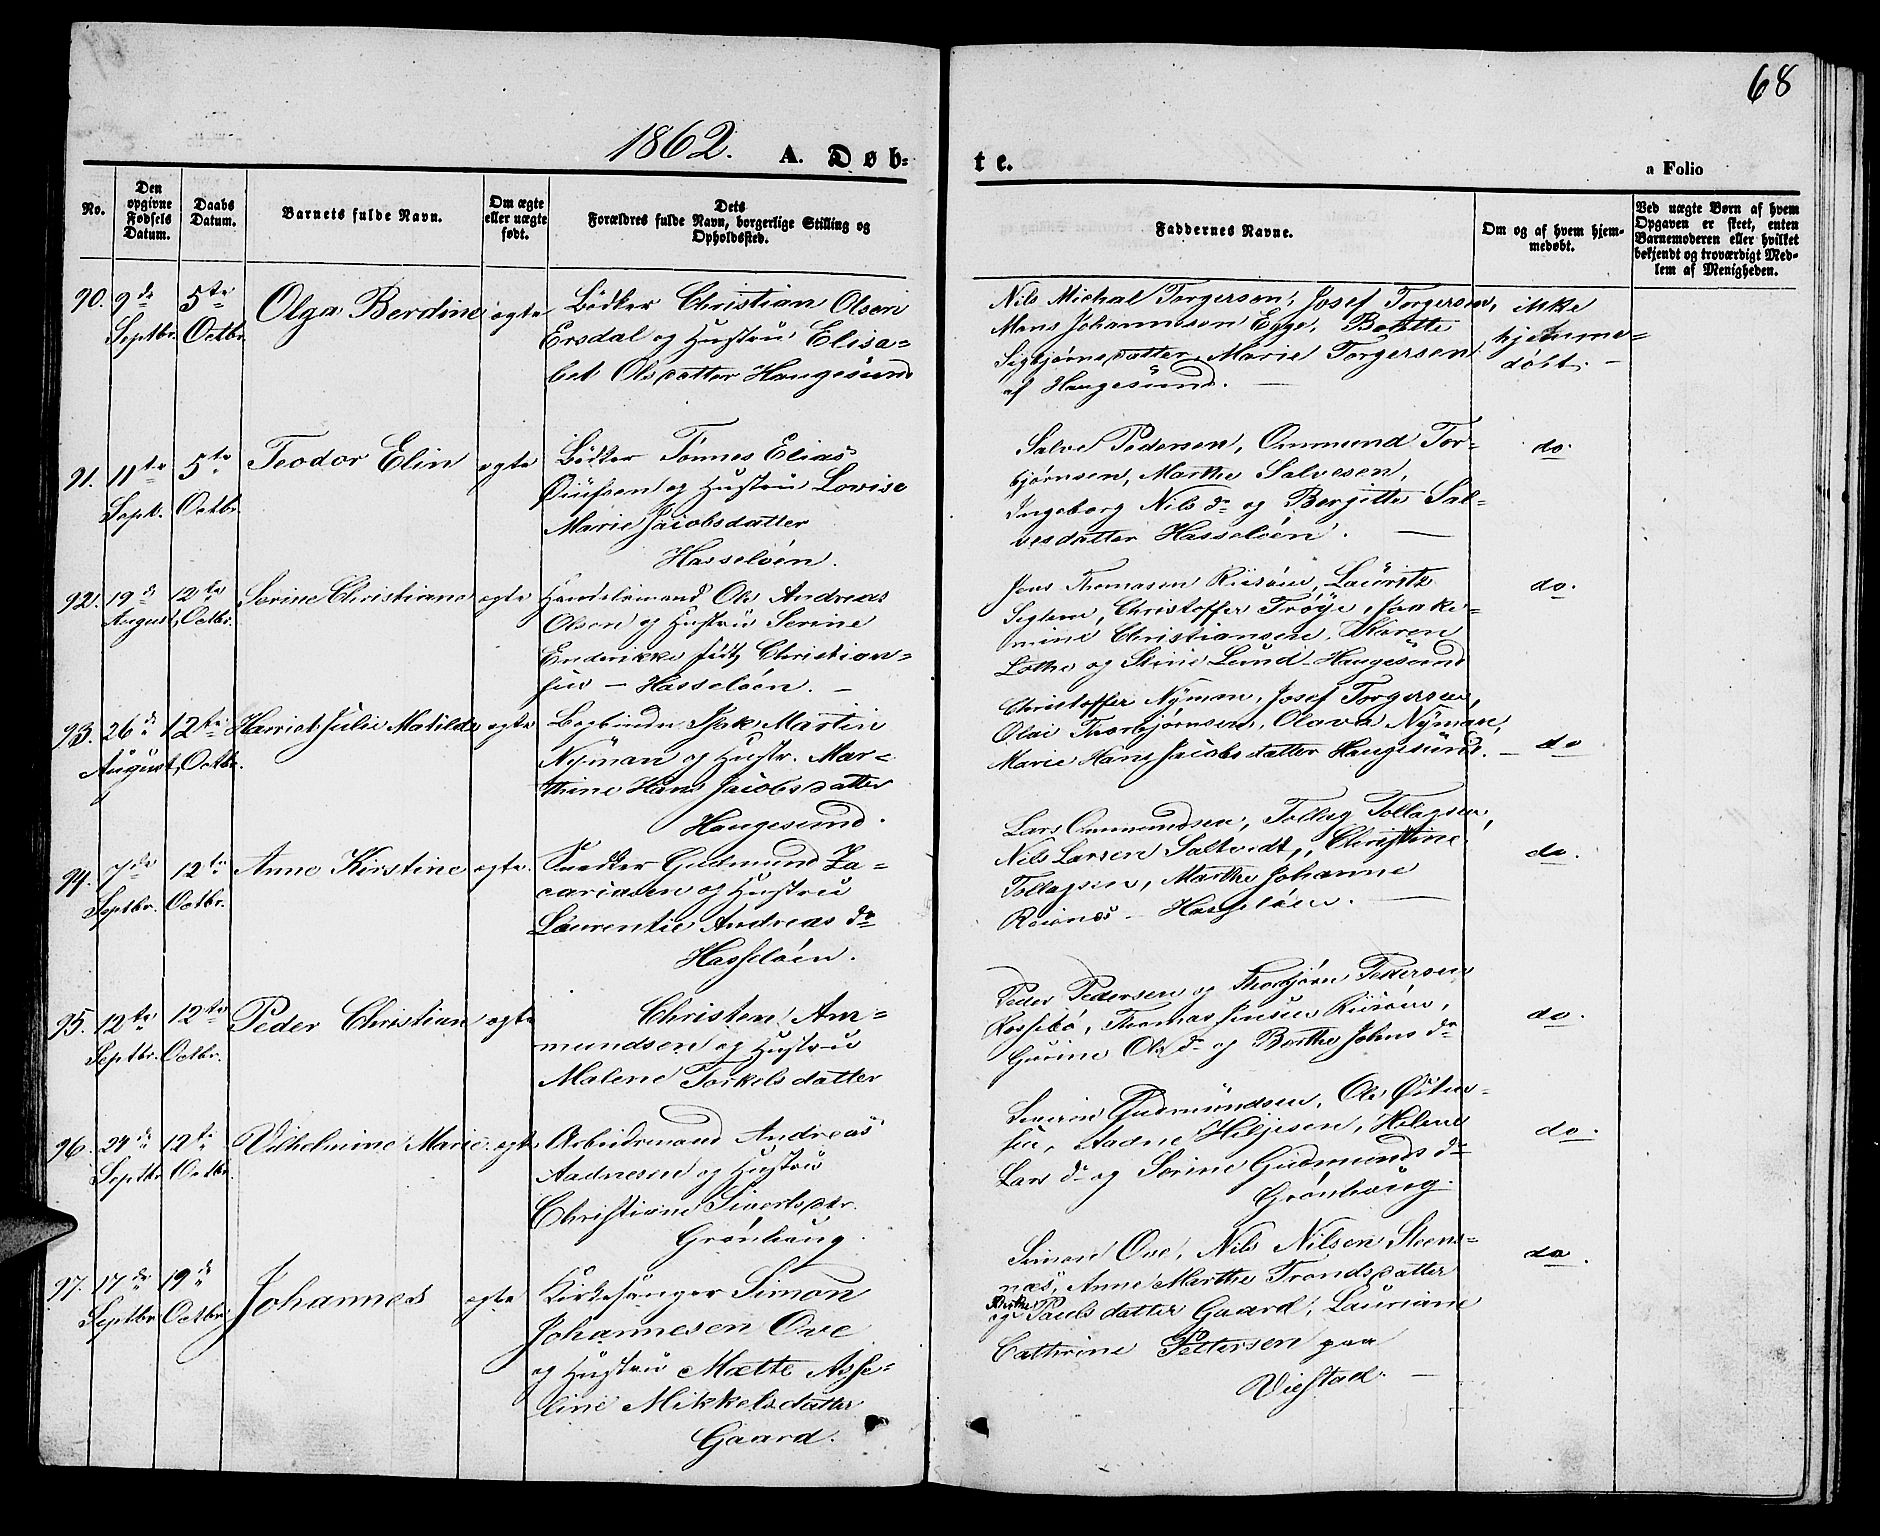 68
1862. A. Døb=
te.
a Folio
No.
Den opgivne Fødsels Datum.
Daabs Datum.
Barnets fulde Navn.
Om ægte eller uægte født.
Dets Forældres fulde Navn, borgerlige Stilling og Opholdssted.
Faddernes Navne.
Om og af hvem hjemmedøbt.
Ved uægte Børn af hvem Opgaven er skeet, enten Barnemoderen eller hvilket bekjendt og troværdigt Medlem af Menigheden.
90. 9de Septbr. 5te Octbr. Olga Berdine ægte
Bødker Christian Olsen
Ersdal og Hustru Elisa=
bet Olsdatter Haugesund
Nils Michal Torgersen, Josef Torgersen,
Mons Johannesen Eyge,
Sigbjørnsdatter, Marie Torgersen
af Haugesund. —
ikke
hjemme=
døbt. —
91. 11te Sept. 5te Octbr. Teodor Elin ægte
Bødker Tønnes Elias
og Hustru Lovise
Marie Jacobsdatter
Hasseløen.
Salve Pedersen, Ommund Tor=
bjørnsen, Marthe Salvesen,
Ingeborg Nilsdr og Bergitte Sal=
vesdatter Hasseløen. —
do.
92. 19de August, 12te Octbr. Serine Christiane ægte
Handelsmand Ole Andreas
Olsen og Hustru Serine
Endrikke født Christian=
sen — Hasseløen. —
Jens Thomasen Risøen, Lauritz
Christoffer Trøye,
mine Christiansen, Karen
Lothe og Stine Lund Haugesund
do.
93. 26de August, 12te Octbr. Harriet Julie Matilde ægte
Bogbinder Martin
Nyman og Hustr. Mar=
thine Hans Jacobsdatter
Haugesund.
Christoffer Nyman, Josef Torgersen,
Olai Thorbjørnsen, Olava Nyman,
Marie Hans Jacobsdatter Haugesund. —
do
94. 7de Septbr. 12te Octbr. Anne Kirstine ægte.
Snedker Gudmund Za=
cariasen og Hustru
Laurentie Andreasdr
Hasseløen.
Lars Ommundsen, Tollag Tollagsen,
Nils Larsen Saltvedt, Christine
Tollagsen, Marthe Johanne
Hasseløen. —
do.
95. 12te Septbr. 12te Octbr. Peder Christian ægte
Christen Am=
mundsen og Hustru
Malene Torkelsdatter
Peder Pedersen og Thorbjørn Pedersen
Rossebø, Thomas Jensen Risøen,
Gurine Olsdr og Berthe Johnsdr
do.
96. 24de Septbr. 12te Octbr. Vilhelmine Marie ægte
Arbeidsmand Andreas
Aadnesen og Hustru
Christiane Sivertsdtr.
Grønhaug.
Severin Gudmundsen, Ole Østen=
sen, Aadne Hiljesen, Helene
Larsdr og Serine Gudmundsdr
Grønhaug.
do.
97. 17de Septbr 19de Octbr. Johannes ægte
Kirkesanger Simon
Johannesen Ove
og Hustru Mætte Asse=
line Mikkelsdatter
Gaard.
Simon Ove, Nils Nilsen Steens=
næs, Anne Marthe Trondsdatter
og Berthe Paulsdatter Gaard, Lauriane
Cathrine Pettersen paa
Viestad. —
do.